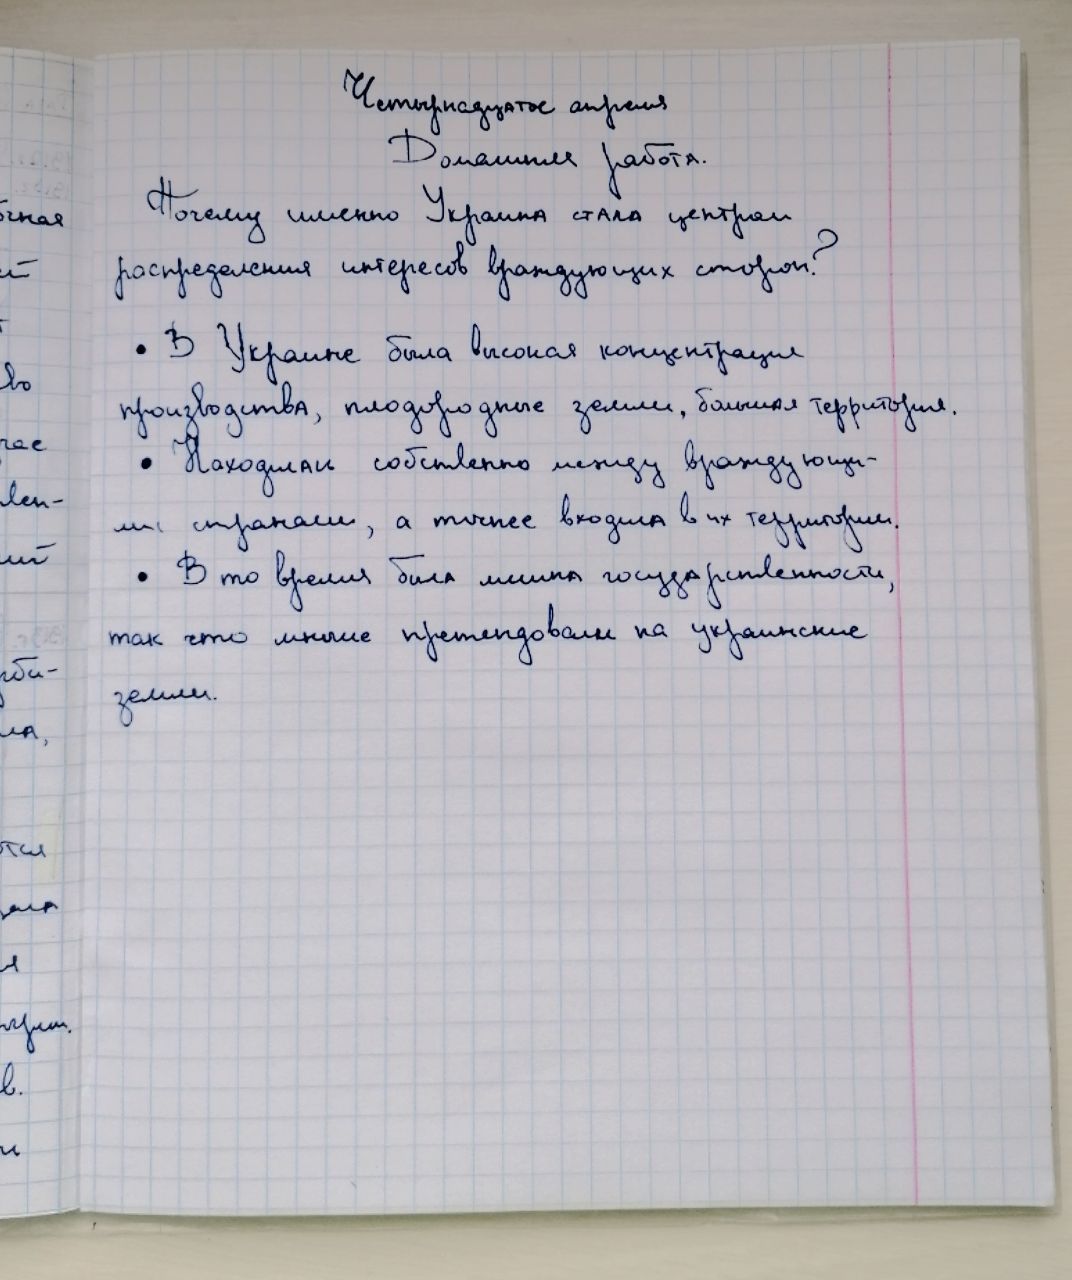 Четырнадцатое апреля
Домашняя работа.
Почему именно Украина стала центром
распределения интересов враждующих сторон?
• В Украине была высокая концентрация
производства, плодородные земли, большая территория.
• Находилась собственно между враждующи-
ми странами, а точнее входила в их территории.
• В то время была лишена государственности,
так что многие претендовали на украинские
земли.